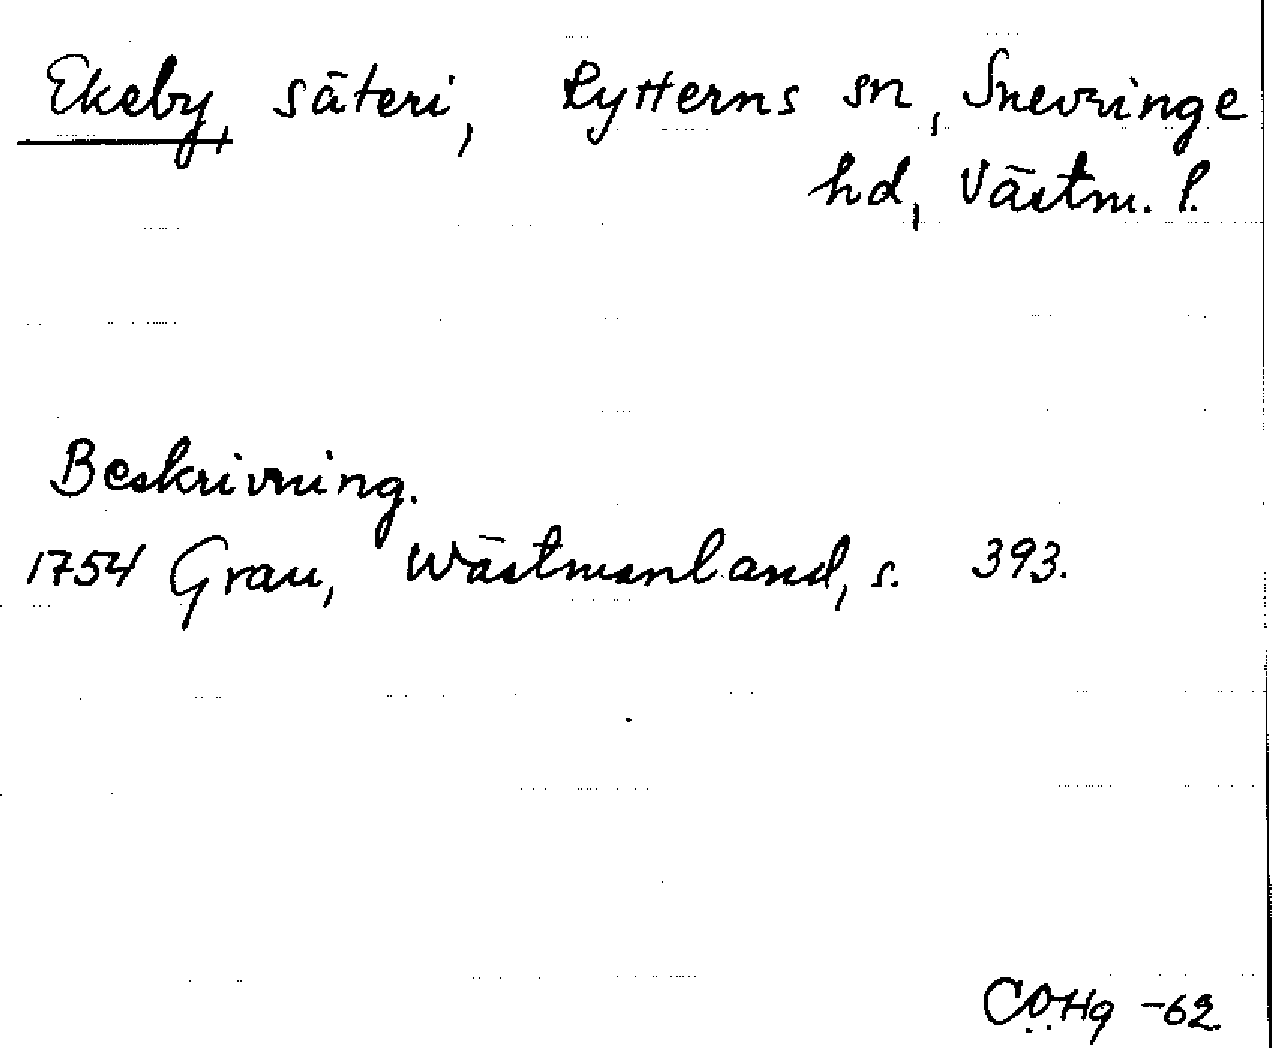 Ekeby, säteri, Rytterns sn, Snevringe
hd, Västm. l.
Beskrivning.
1754 Grau, Wästmanland, s. 393.
COHg -62